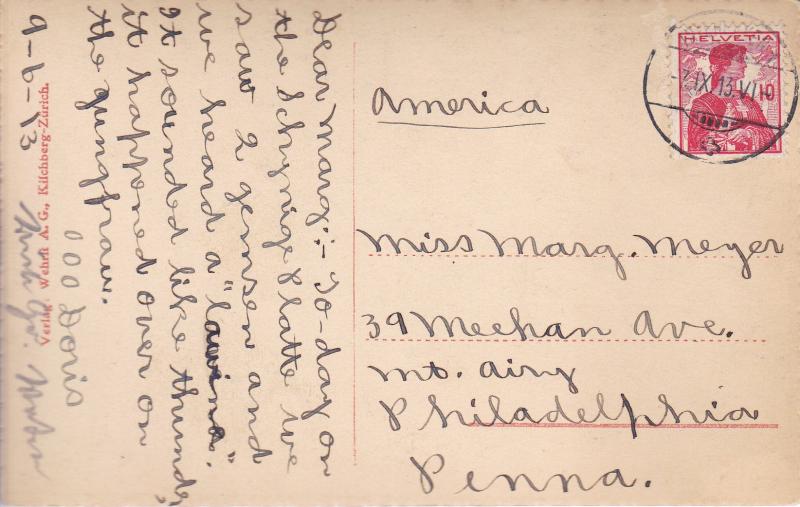 Dear Marg:- To-day on
the Schynige Platte we
saw 2 gemsen and
we heard a "lawina".
It sounded like thunder,
it happened over on
the Jungfrau.
000 Doris
9-6-13
Verlag: Wehrli A. G., Kilchberg-Zürich.
HELVETIA
IX.13.VI
10
America
Miss Marg. Meyer
39 Meehan Ave.
Mt. Airy
Philadelphia
Penna.